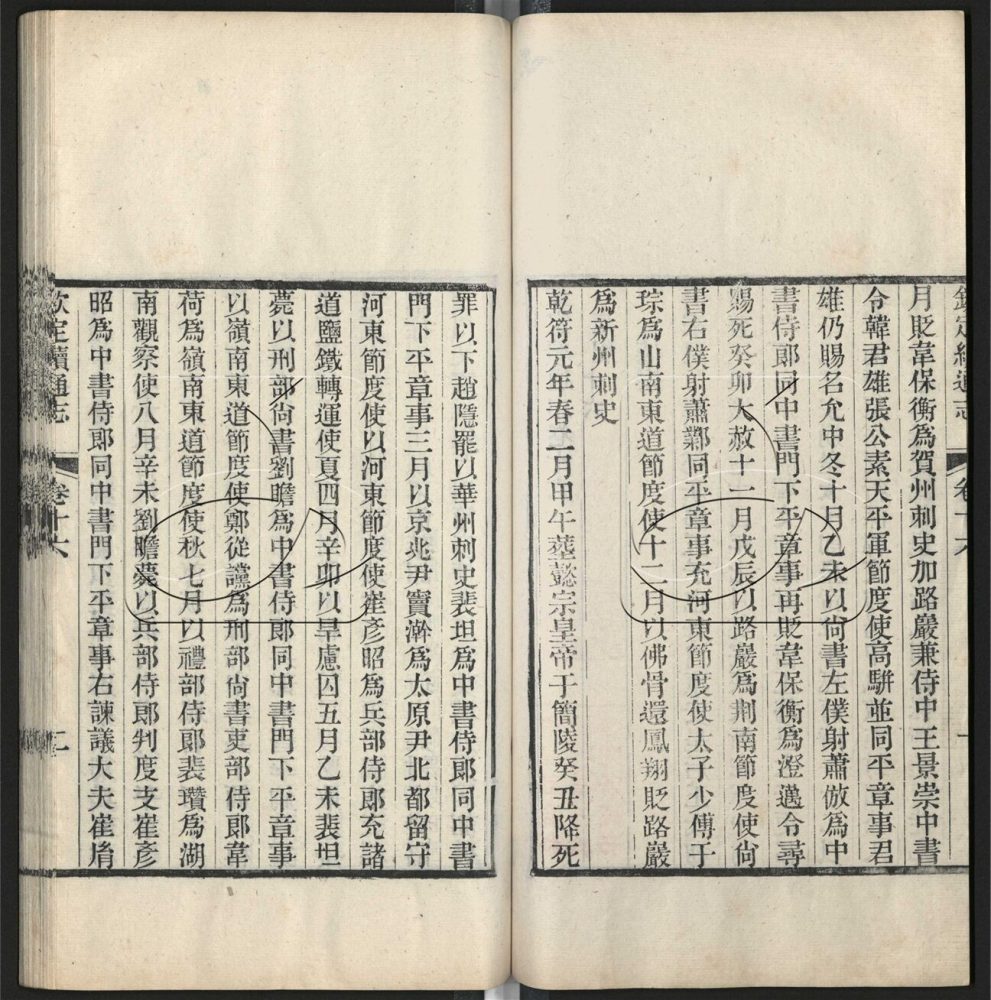 欽定續通志 卷十六 一
月貶韋保衡爲賀州刺史加路巖兼侍中王景崇中書
令韓君雄張公素天平軍節度使高駢並同平章事君
雄仍賜名允中冬十月乙未以尙書左僕射蕭倣爲中
書侍郎同中書門下平章事再貶韋保衡爲澄邁令尋
賜死癸卯大赦十一月戊辰以路巖爲荆南節度使尙
書右僕射蕭鄴同平章事充河東節度使太子少傅于
琮爲山南東道節度使十二月以佛骨還鳳翔貶路巖
爲新州刺史
乾符元年春二月甲午葬懿宗皇帝于簡陵癸丑降死
罪以下趙隱罷以華州刺史裴坦爲中書侍郎同中書
門下平章事三月以京兆尹竇澣爲太原尹北都留守
河東節度使以河東節度使崔彥昭爲兵部侍郎充諸
道鹽鐵轉運使夏四月辛卯以旱慮囚五月乙未裴坦
薨以刑部尙書劉瞻爲中書侍郎同中書門下平章事
以嶺南東道節度使鄭從讜爲刑部尙書吏部侍郎韋
荷爲嶺南東道節度使秋七月以禮部侍郎裴瓚爲湖
南觀察使八月辛未劉瞻薨以兵部侍郎判度支崔彥
昭爲中書侍郎同中書門下平章事右諫議大夫崔胤
欽定續通志 卷十六 二